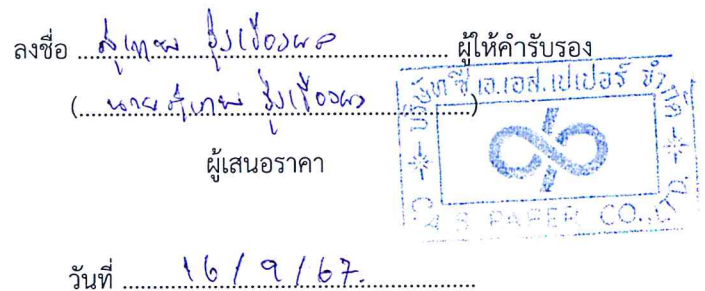 ลงชื่อ สุเทพ รุ่งเรืองผล ผู้ให้คำรับรอง
( นายสุเทพ รุ่งเรืองผล )
ผู้เสนอราคา
บริษัท ซี.เอ.เอส.เปเปอร์ จำกัด
C.A.S PAPER CO.,LTD.
วันที่ 16 / 9 / 67.